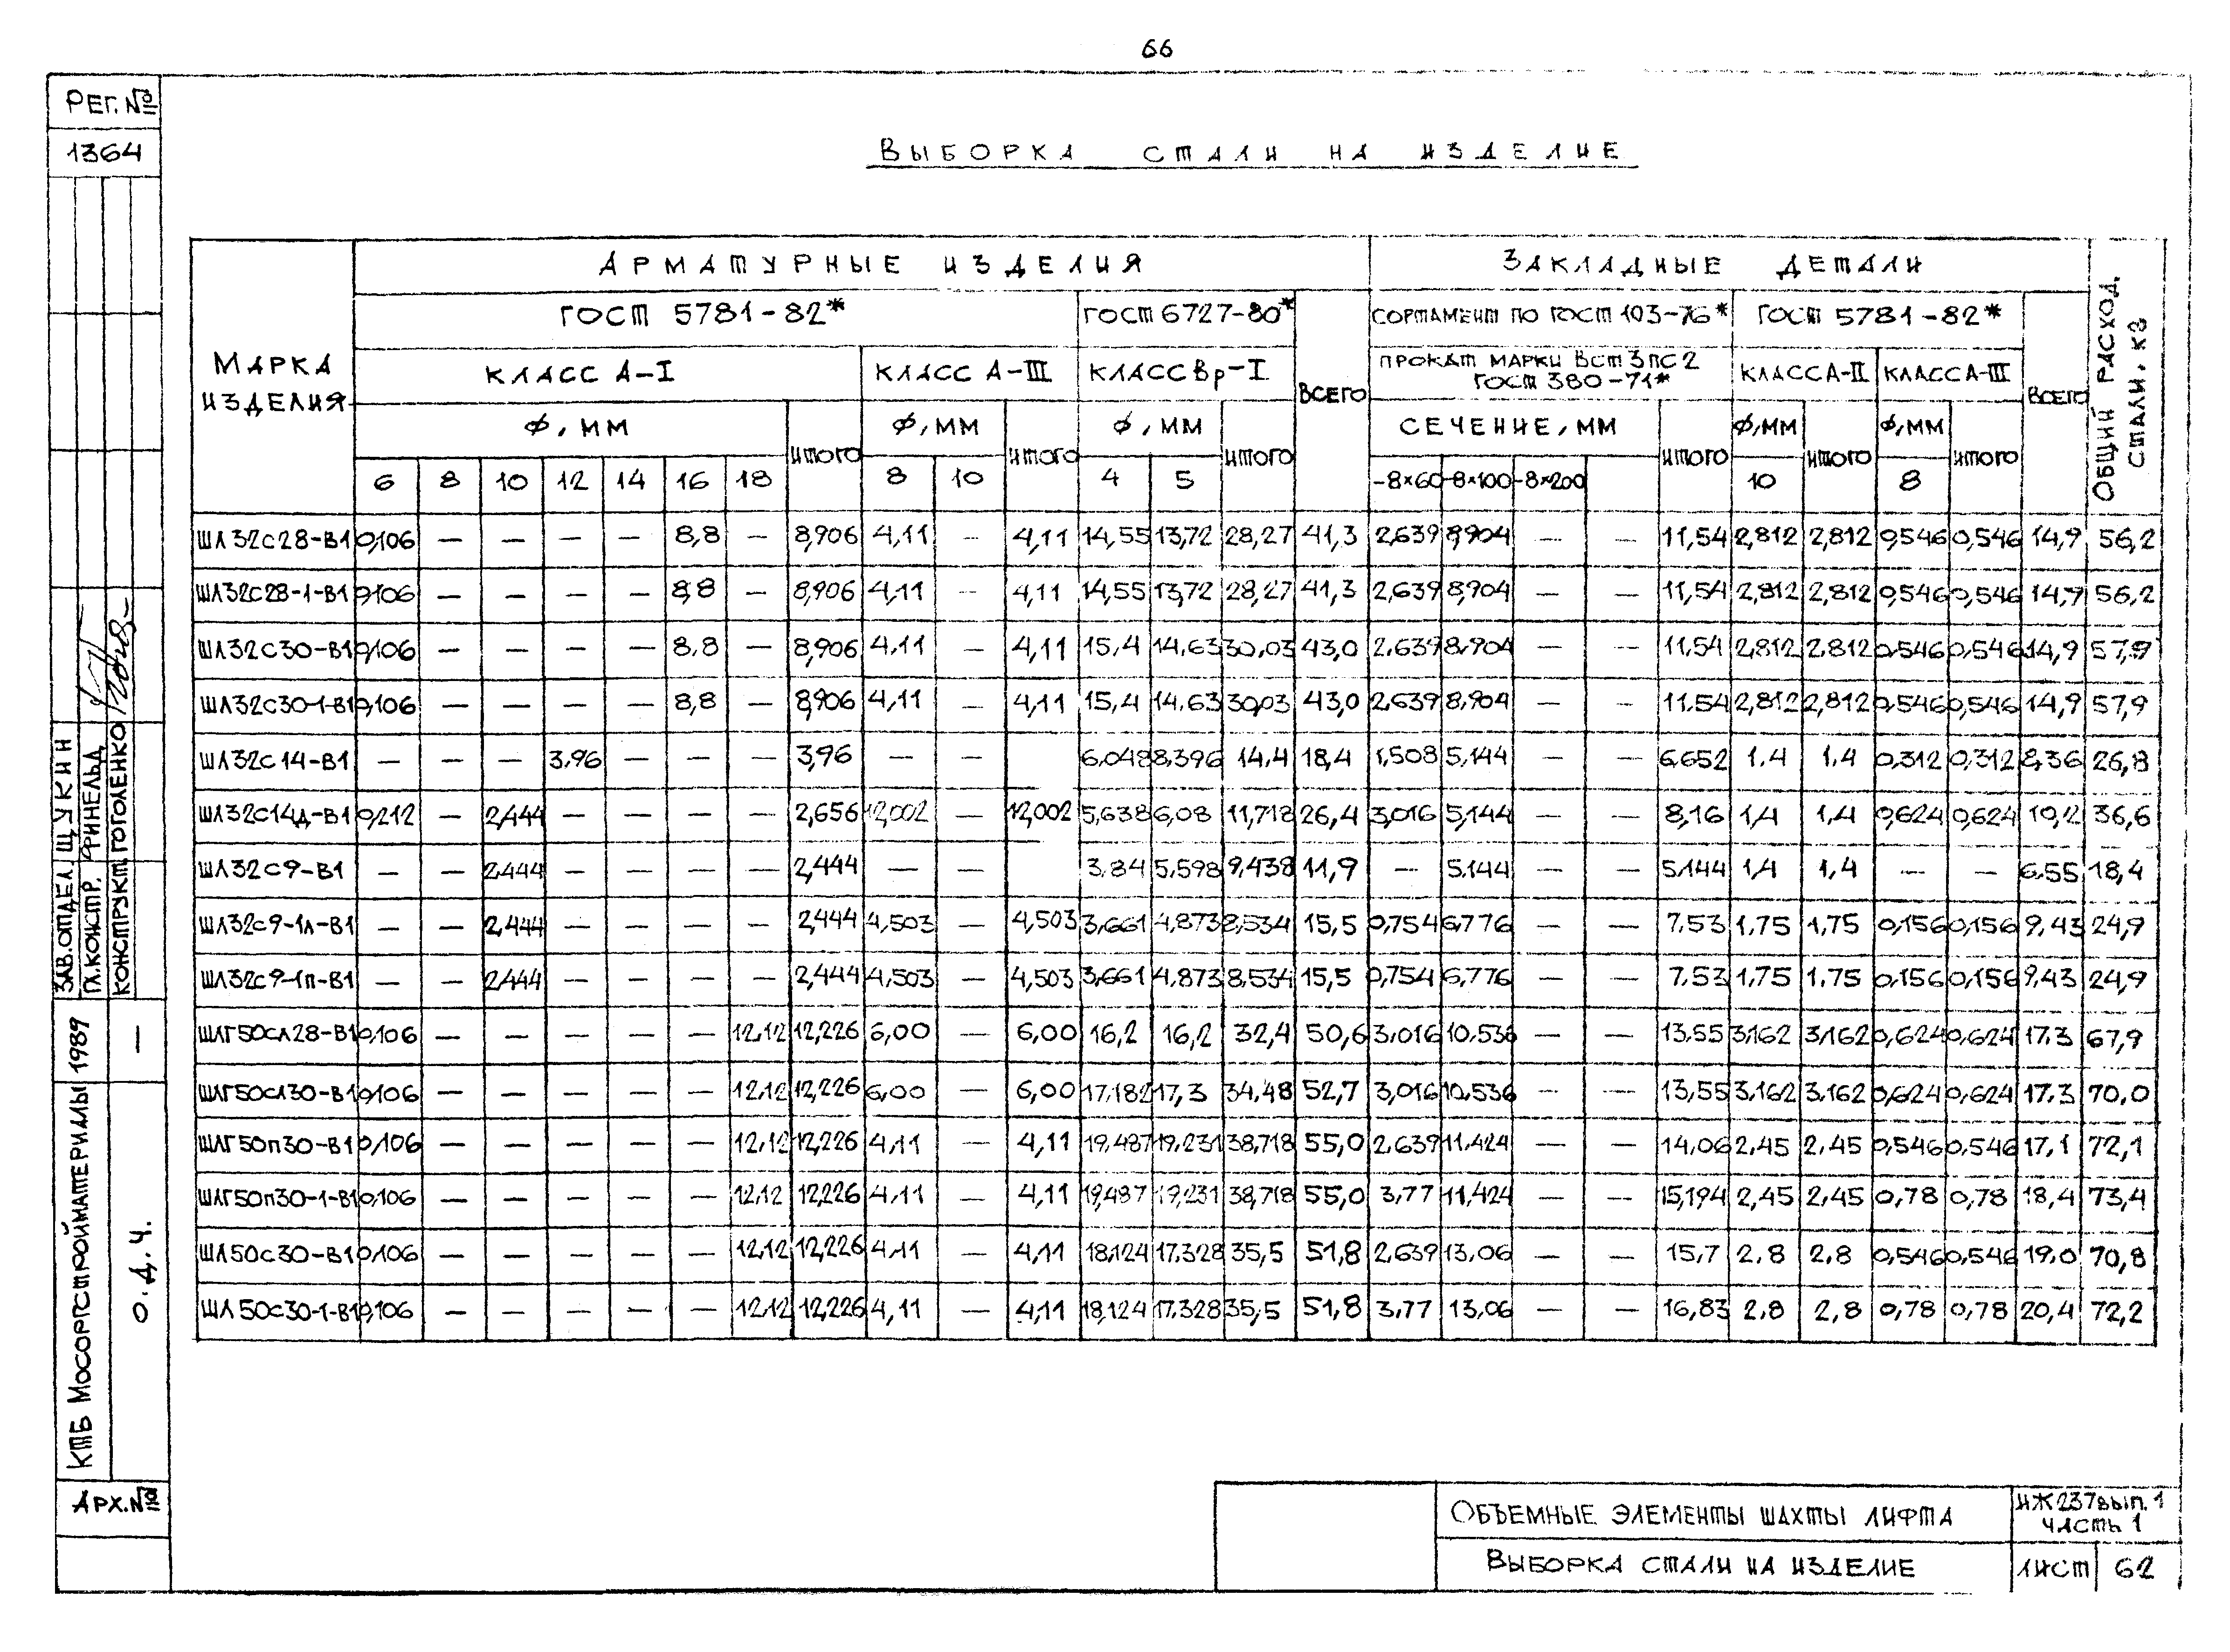 66
РЕГ. №
1364
ВЫБОРКА СТАЛИ НА ИЗДЕЛИЕ
МАРКА ИЗДЕЛИЯ
АРМАТУРНЫЕ ИЗДЕЛИЯ
ЗАКЛАДНЫЕ ДЕТАЛИ
ОБЩИЙ РАСХОД СТАЛИ, КГ
ГОСТ 5781-82*
ГОСТ 6727-80*
ВСЕГО
СОРТАМЕНТ ПО ГОСТ 103-76*
ГОСТ 5781-82*
ВСЕГО
КЛАСС А-I
КЛАСС А-III
КЛАСС Вр-I
ПРОКАТ МАРКИ ВСТ3ПС2
ГОСТ 380-71*
КЛАСС А-II
КЛАСС А-III
Ø, ММ ИТОГО Ø, ММ ИТОГО Ø, ММ ИТОГО СЕЧЕНИЕ, ММ ИТОГО Ø, ММ ИТОГО Ø, ММ ИТОГО
6 8 10 12 14 16 18 8 10 4 5 -8×60 -8×100 -8×200 10 8
ШЛ32С28-В1 0,106 — — — — 8,8 — 8,906 4,11 — 4,11 14,55 13,72 28,27 41,3 2,639 8,904 — — 11,54 2,812 2,812 0,546 0,546 14,9 56,2
ШЛ32С28-1-В1 0,106 — — — — 8,8 — 8,906 4,11 — 4,11 14,55 13,72 28,27 41,3 2,639 8,904 — — 11,54 2,812 2,812 0,546 0,546 14,9 56,2
ШЛ32С30-В1 0,106 — — — — 8,8 — 8,906 4,11 — 4,11 15,4 14,63 30,03 43,0 2,639 8,904 — — 11,54 2,812 2,812 0,546 0,546 14,9 57,9
ШЛ32С30-1-В1 0,106 — — — — 8,8 — 8,906 4,11 — 4,11 15,4 14,63 30,03 43,0 2,639 8,904 — — 11,54 2,812 2,812 0,546 0,546 14,9 57,9
ШЛ32С14-В1 — — — 3,96 — — — 3,96 — — 6,048 8,396 14,4 18,4 1,508 5,144 — — 6,652 1,4 1,4 0,312 0,312 8,36 26,8
ШЛ32С14Д-В1 0,212 — 2,444 — — — — 2,656 12,002 — 12,002 5,638 6,08 11,718 26,4 3,016 5,144 — — 8,16 1,4 1,4 0,624 0,624 10,2 36,6
ШЛ32С9-В1 — — 2,444 — — — — 2,444 — — 3,84 5,598 9,438 11,9 — 5,144 — — 5,144 1,4 1,4 — — 6,55 18,4
ШЛ32С9-1Л-В1 — — 2,444 — — — — 2,444 4,503 — 4,503 3,661 4,873 8,534 15,5 0,754 6,776 — — 7,53 1,75 1,75 0,156 0,156 9,43 24,9
ШЛ32С9-1П-В1 — — 2,444 — — — — 2,444 4,503 — 4,503 3,661 4,873 8,534 15,5 0,754 6,776 — — 7,53 1,75 1,75 0,156 0,156 9,43 24,9
ШЛГ50СЛ28-В1 0,106 — — — — — 12,12 12,226 6,00 — 6,00 16,2 16,2 32,4 50,6 3,016 10,536 — — 13,55 3,162 3,162 0,624 0,624 17,3 67,9
ШЛГ50СЛ30-В1 0,106 — — — — — 12,12 12,226 6,00 — 6,00 17,182 17,3 34,48 52,7 3,016 10,536 — — 13,55 3,162 3,162 0,624 0,624 17,3 70,0
ШЛГ50П30-В1 0,106 — — — — — 12,12 12,226 4,11 — 4,11 19,487 19,231 38,718 55,0 2,639 11,424 — — 14,06 2,45 2,45 0,546 0,546 17,1 72,1
ШЛГ50П30-1-В1 0,106 — — — — — 12,12 12,226 4,11 — 4,11 19,487 19,231 38,718 55,0 3,77 11,424 — — 15,194 2,45 2,45 0,78 0,78 18,4 73,4
ШЛ50С30-В1 0,106 — — — — — 12,12 12,226 4,11 — 4,11 18,124 17,328 35,5 51,8 2,639 13,06 — — 15,7 2,8 2,8 0,546 0,546 19,0 70,8
ШЛ50С30-1-В1 0,106 — — — — — 12,12 12,226 4,11 — 4,11 18,124 17,328 35,5 51,8 3,77 13,06 — — 16,83 2,8 2,8 0,78 0,78 20,4 72,2
ЗАВ. ОТДЕЛ. ЩУКИН
ГЛ. КОНСТР. ФРИНЕЛЬД
КОНСТРУКТ. ГОГОЛЕНКО
КТБ МОСОРГСТРОЙМАТЕРИАЛЫ 1989
О. Д. Ч. —
АРХ. №
ОБЪЕМНЫЕ ЭЛЕМЕНТЫ ШАХТЫ ЛИФТА
ИЖ 237 вып. 1
ЧАСТЬ 1
ВЫБОРКА СТАЛИ НА ИЗДЕЛИЕ
ЛИСТ 62